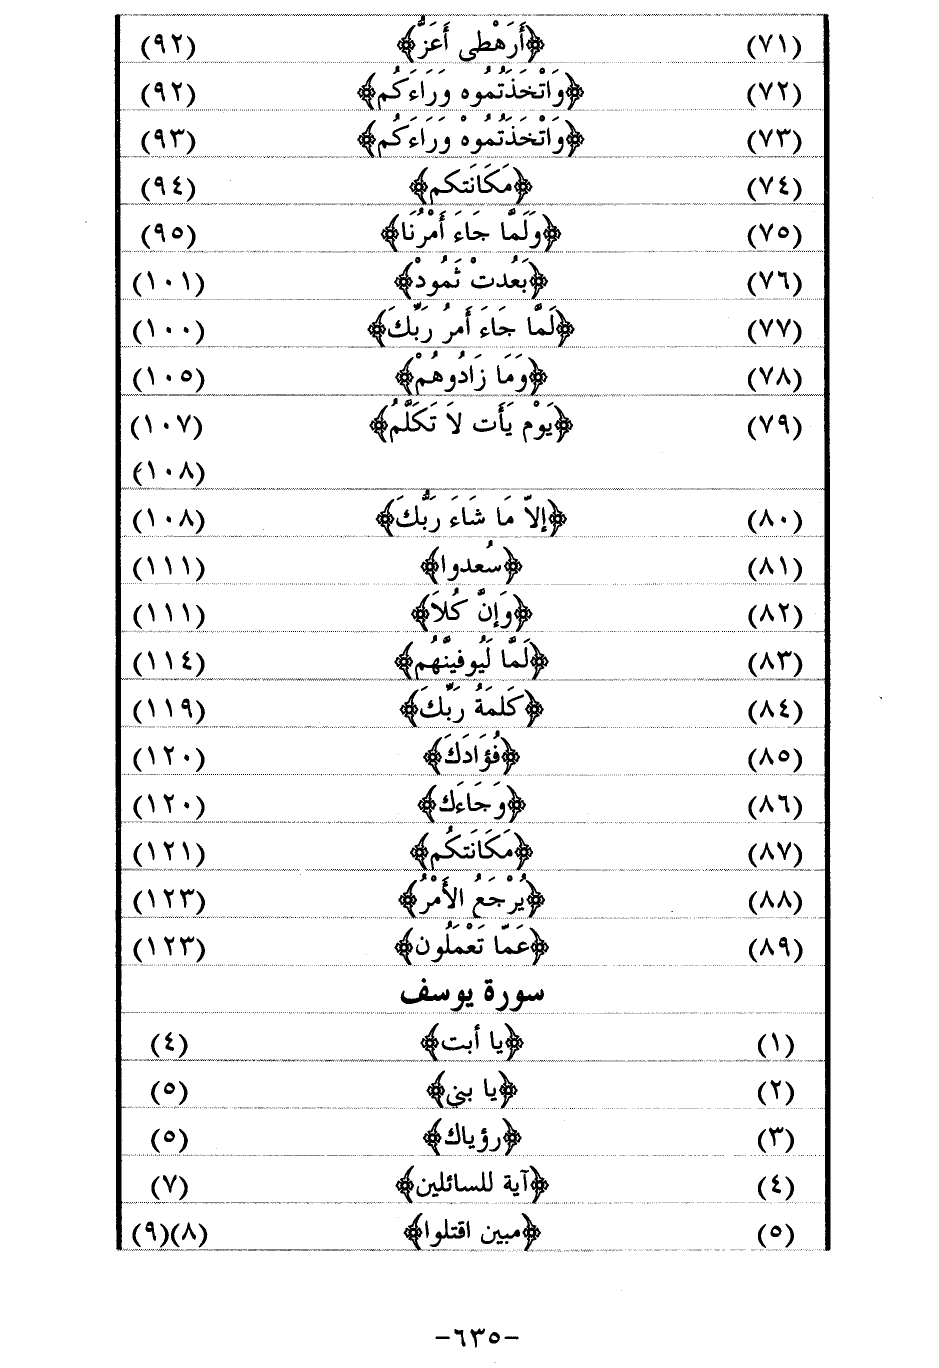 (٧١) ﴿أَرَهْطِى أَعَزُّ﴾ (٩٢)
(٧٢) ﴿وَاتْخَذَتُمُوه وَرَاءَكُم﴾ (٩٢)
(٧٣) ﴿وَاتْخَذَتُمُوهْ وَرَاءَكُم﴾ (٩٣)
(٧٤) ﴿مَكَانَتكم﴾ (٩٤)
(٧٥) ﴿وَلَمَّا جَاءَ أَمْرُنَا﴾ (٩٥)
(٧٦) ﴿بَعُدتْ ثَمُودْ﴾ (١٠١)
(٧٧) ﴿لَمَّا جَاءَ أَمرُ رَبِّكَ﴾ (١٠٠)
(٧٨) ﴿وَمَا زَادُوهُمْ﴾ (١٠٥)
(٧٩) ﴿يَوْم يَأَت لاَ تَكَلَّمُ﴾ (١٠٧)
(١٠٨)
(٨٠) ﴿إلاّ مَا شَاءَ رَبُّكَ﴾ (١٠٨)
(٨١) ﴿سُعدوا﴾ (١١١)
(٨٢) ﴿وَإنَّ كُلاَ﴾ (١١١)
(٨٣) ﴿لَمَّا لَيُوفينَّهُم﴾ (١١٤)
(٨٤) ﴿كَلمَةُ رَبِّكَ﴾ (١١٩)
(٨٥) ﴿فُؤَادَكَ﴾ (١٢٠)
(٨٦) ﴿وَجَاءَك﴾ (١٢٠)
(٨٧) ﴿مَكَانَتكُم﴾ (١٢١)
(٨٨) ﴿يُرْجَعُ الأَمْرُ﴾ (١٢٣)
(٨٩) ﴿عَمّا تَعْمَلُون﴾ (١٢٣)
سورة يوسف
(١) ﴿يا أبت﴾ (٤)
(٢) ﴿يا بني﴾ (٥)
(٣) ﴿رؤياك﴾ (٥)
(٤) ﴿آية للسائلين﴾ (٧)
(٥) ﴿مبين اقتلوا﴾ (٨)(٩)
-٦٣٥-